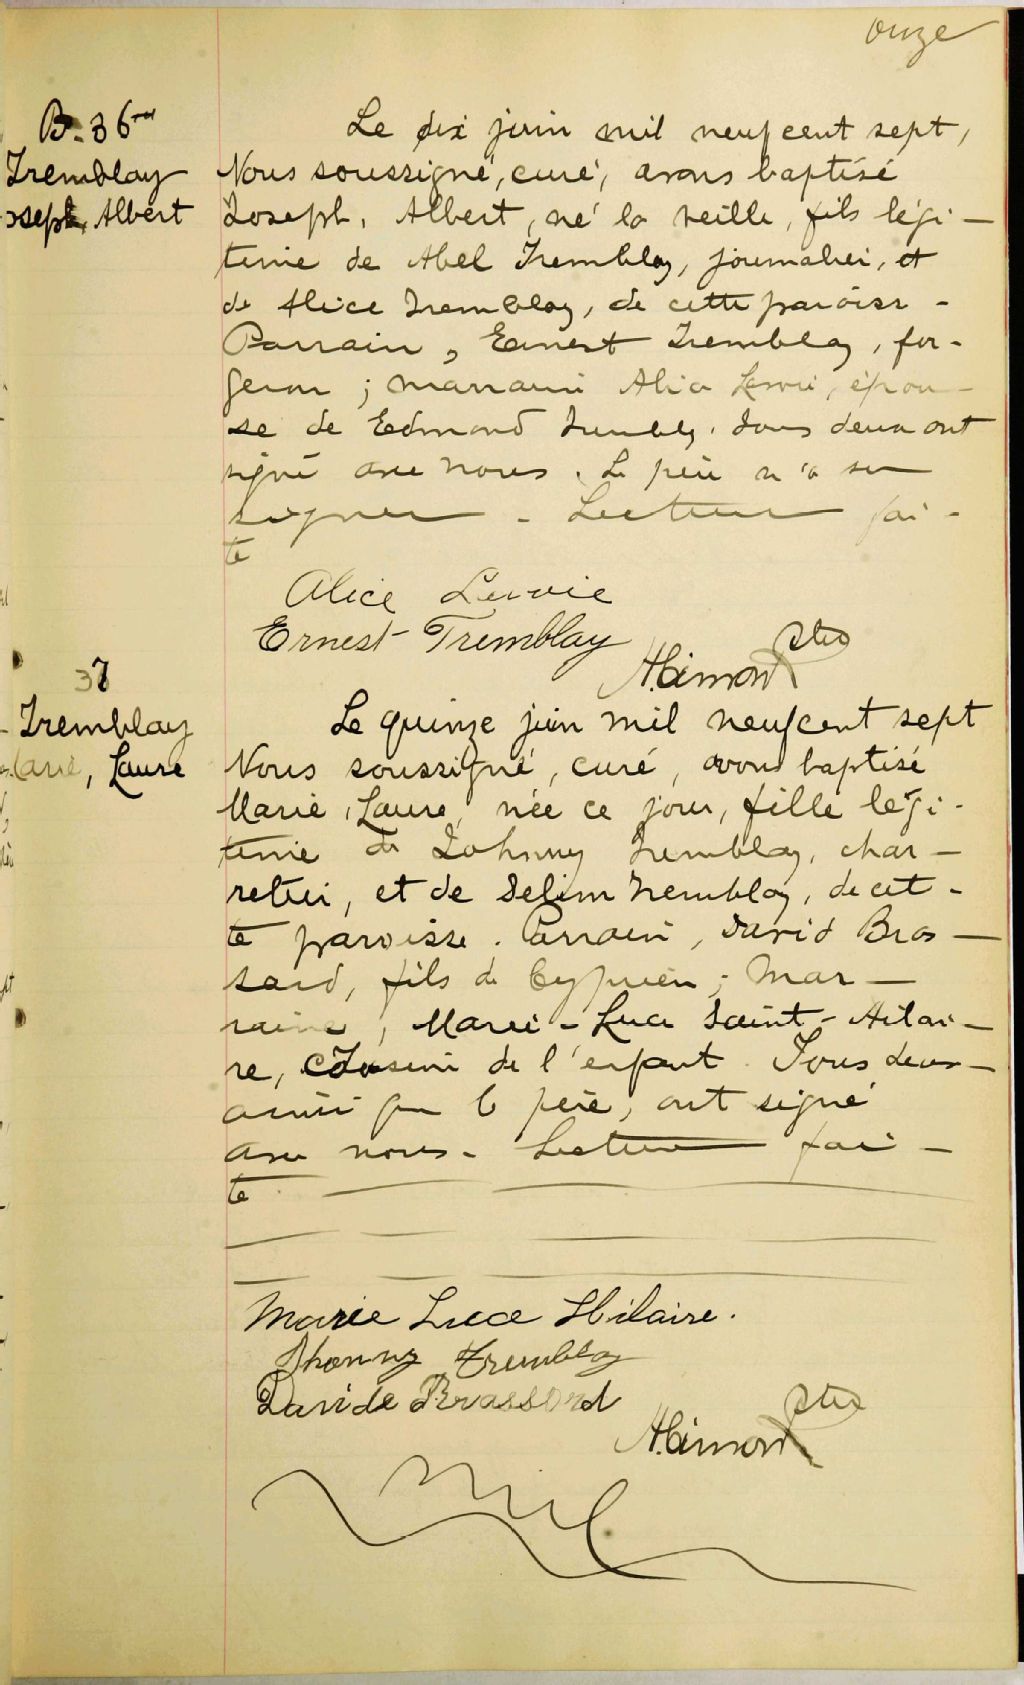 onze
B. 36
Tremblay
Joseph, Albert
Le dix juin mil neuf cent sept,
Nous soussigné, curé, avons baptisé
Joseph, Albert, né la veille, fils légi-
time de Abel Tremblay, journalier, et
de Alice Tremblay, de cette paroisse -
Parrain, Ernest Tremblay, for-
geron ; marraine Alice Lavoie, épou-
se de Edmond Tremblay. Tous deux ont
signé avec nous. Le père n'a su
signer - Lecture fai-
te
Alice Lavoie
Ernest Tremblay
H. Cimon Ptre
37
Tremblay
Marie, Laure
Le quinze juin mil neuf cent sept
Nous soussigné, curé, avons baptisé
Marie, Laure, née ce jour, fille légi-
time de Johnny Tremblay, char-
retier, et de Delima Tremblay, de cet-
te paroisse. Parrain, David Bras-
sard, fils de Cyprien ; mar-
raine, Marie-Luce Saint-Hilai-
re, cousine de l'enfant. Tous deux
ainsi que le père, ont signé
avec nous - Lecture fai-
te
Marie Luce Hilaire.
Jhonny Tremblay
Davide Brassard
H. Cimon Ptre